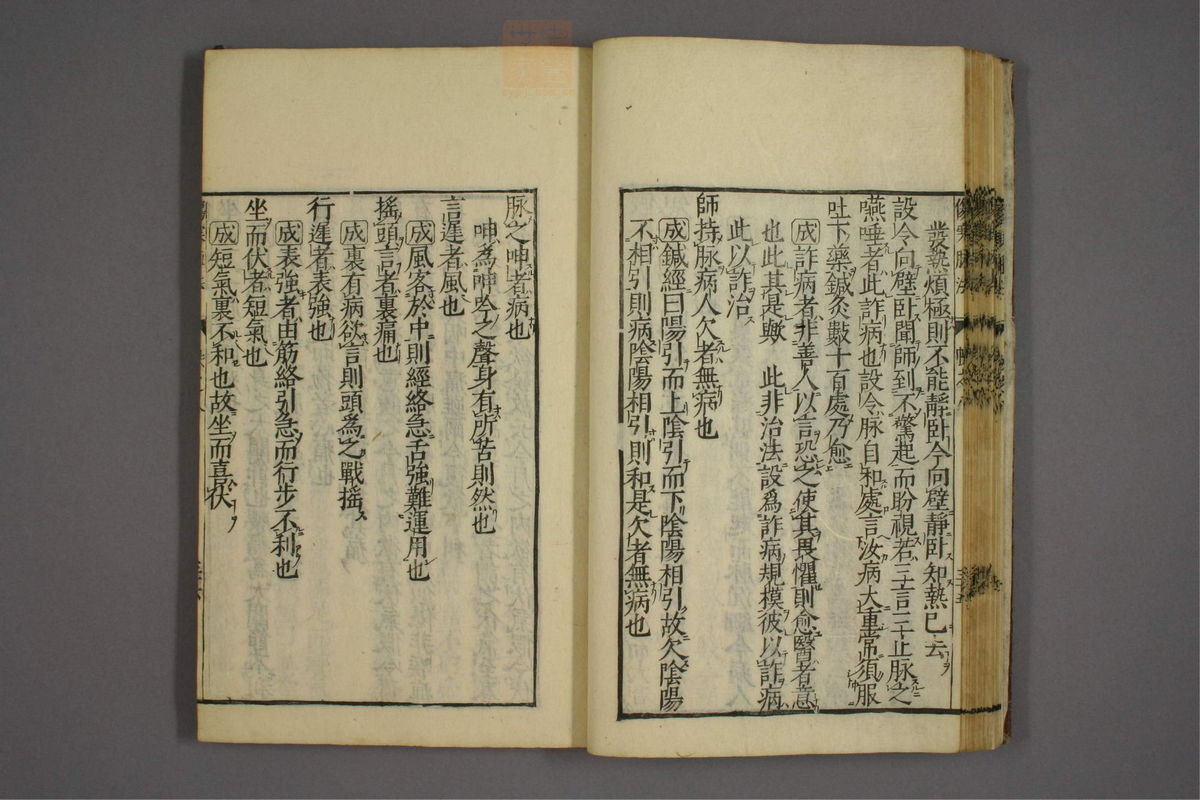 發熱煩極則不能靜卧今向壁靜卧知熱已去
設令向壁卧聞師到不驚起而盻視若三言三止脉之
嚥唾者此詐病也設令脉自和處言汝病大重當須服
吐下藥鍼灸數十百處乃愈
成詐病者非善人以言恐之使其畏懼則愈醫者意
也此其是歟 此非治法設爲詐病規模彼以詐病
此以詐治
師持脉病人欠者無病也
成鍼經曰陽引而上陰引而下陰陽相引故欠陰陽
不相引則病陰陽相引則和是欠者無病也
脉之呻者病也
呻爲呻吟之聲身有所苦則然也
言遲者風也
成風客於中則經絡急舌強難運用也
搖頭言者裏痛也
成裏有病欲言則頭爲之戰搖
行遲者表強也
成表強者由筋絡引急而行步不利也
坐而伏者短氣也
成短氣裏不和也故坐而喜伏